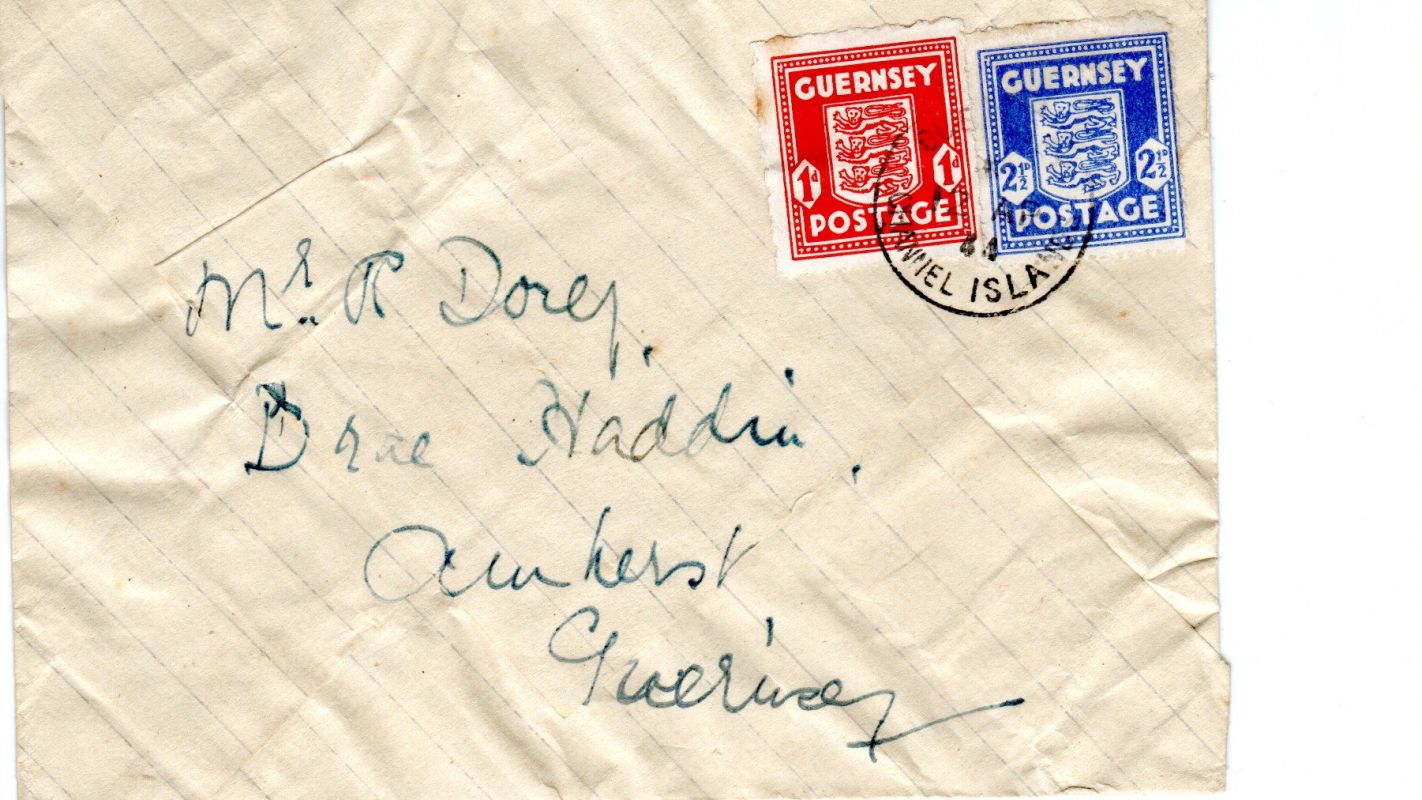 GUERNSEY
1d 1d
POSTAGE
GUERNSEY
2½D 2½D
POSTAGE
44
CHANNEL ISLANDS
Mr. R Dorey.
Brae Haddin.
Amherst
Guernsey